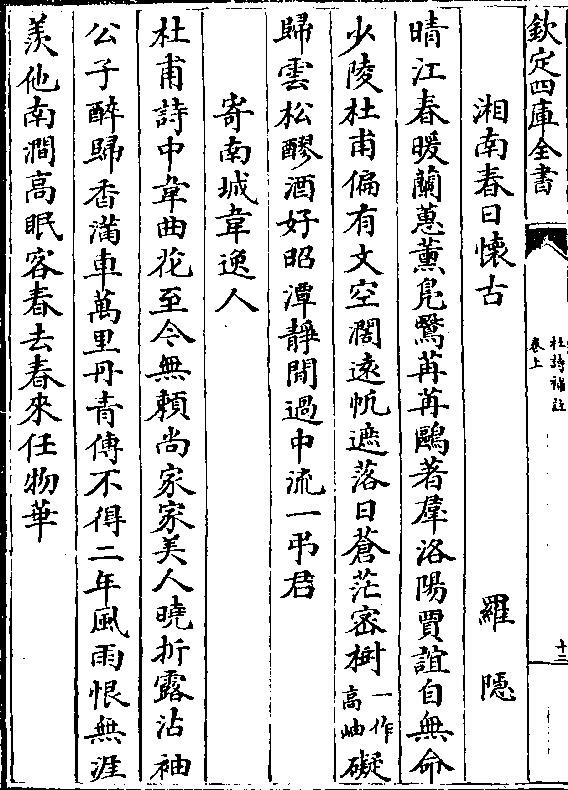 欽定四庫全書
杜詩補註
卷上
十三
湘南春日懷古 羅隱
晴江春暖蘭蕙薰鳧鷖苒苒鷗著羣洛陽賈誼自無命
少陵杜甫偏有文空濶遠帆遮落日蒼茫密樹一作高岫礙
歸雲松醪酒好昭潭靜閒過中流一弔君
寄南城韋逸人
杜甫詩中韋曲花至今無頼尚家家美人曉折露沾袖
公子醉歸香滿車萬里丹青傳不得二年風雨恨無涯
羨他南澗高眠客春去春來任物華